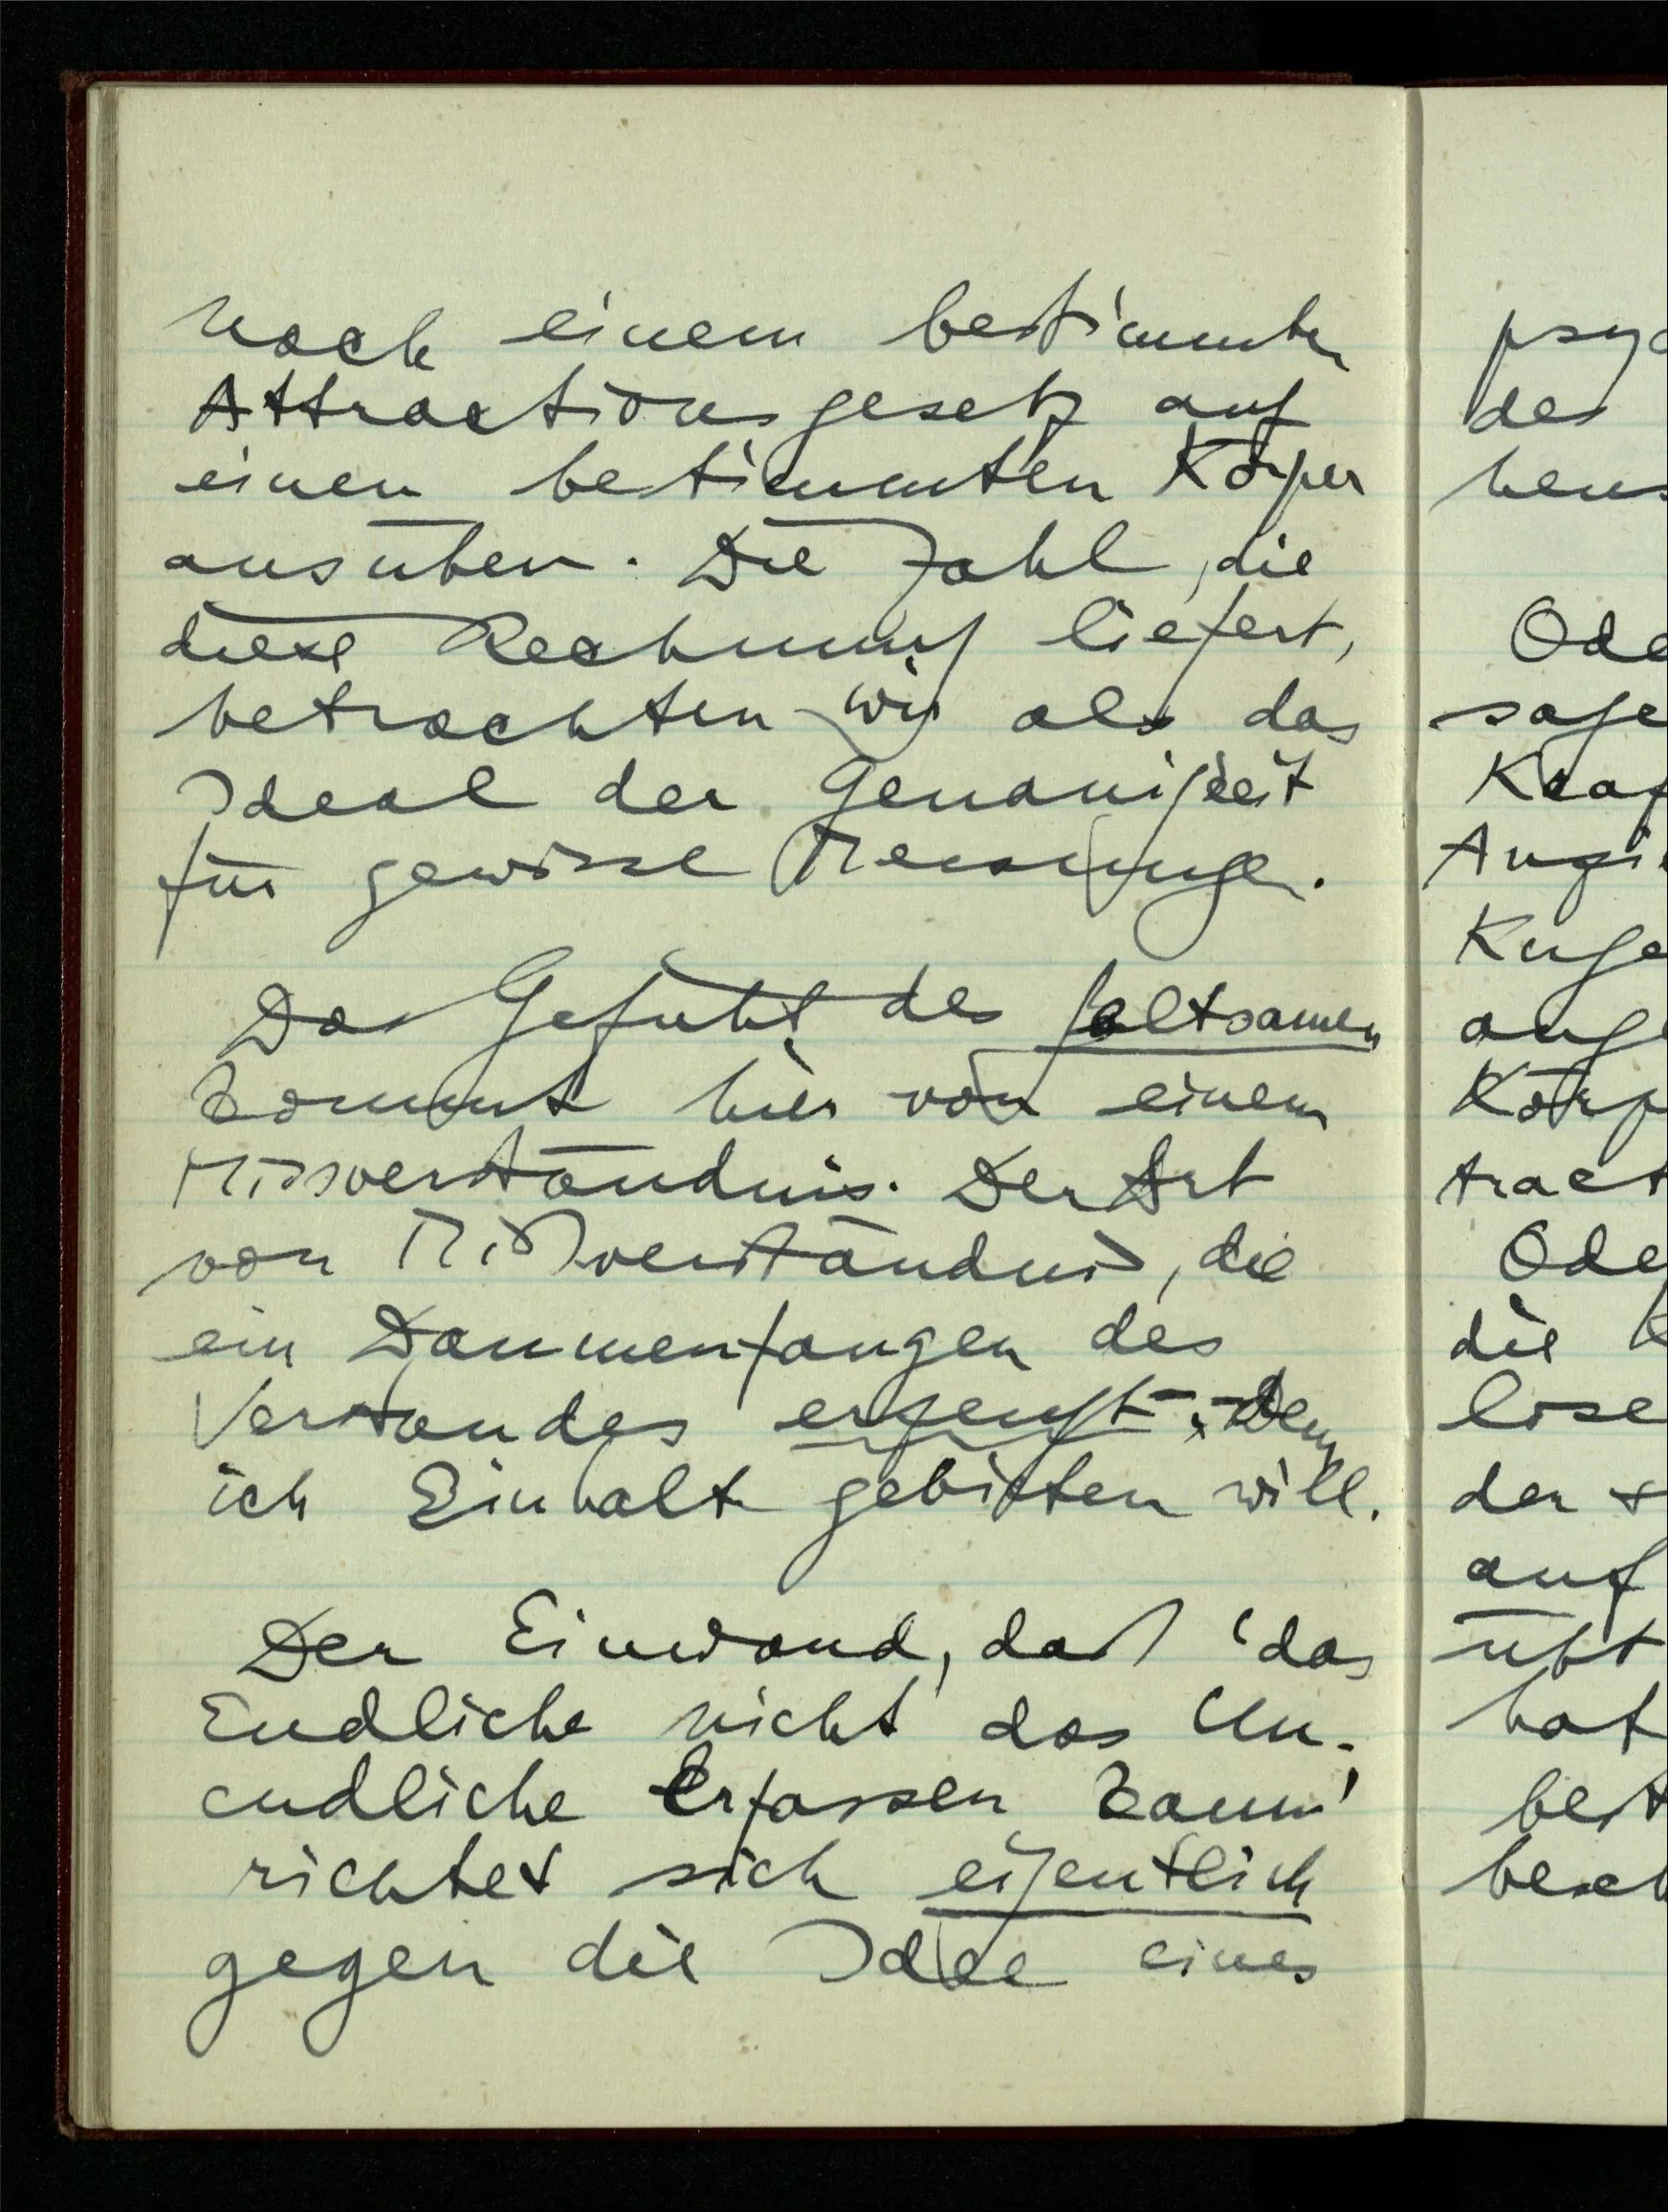 nach einem bestimmten
Attractionsgesetz auf
einen bestimmten Körper
ausüben. Die Zahl, die
diese Rechnung liefert,
betrachten wir als das
Ideal der Genauigkeit
für gewisse Messungen.
Das Gefühl des seltsamen
kommt hier von einem
Missverständnis. Der Art
von Mißverständnis, die
ein Daumenfangen des
Verstandes erzeugt –, dem
ich Einhalt gebieten will.
Der Einwand, daß 'das
Endliche nicht das Un-
endliche erfassen kann'
richtet sich eigentlich
gegen die Idee eines
des
Ode
sage
Kraf
Kuge
ange
Körp
tract
die
lose
der
auf
übt
hat
best